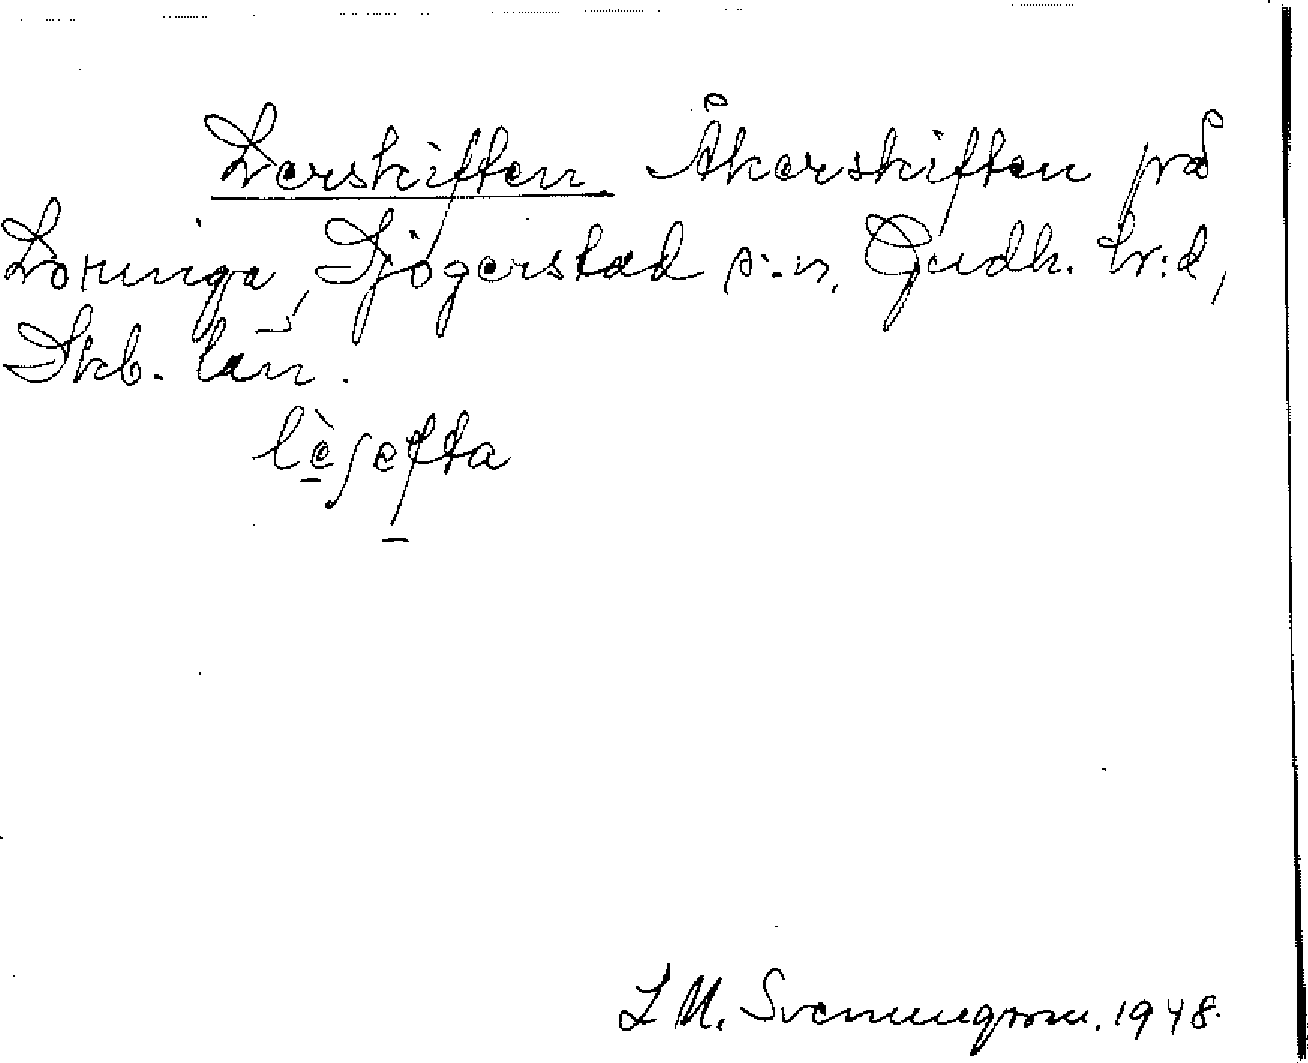 Lerskiften Åkerskiften på
Lovunga, Sjögerstad s:n, Gudh. hr:d,
Skb. län.
lèʃefta
L M. Svenungsson. 1948.